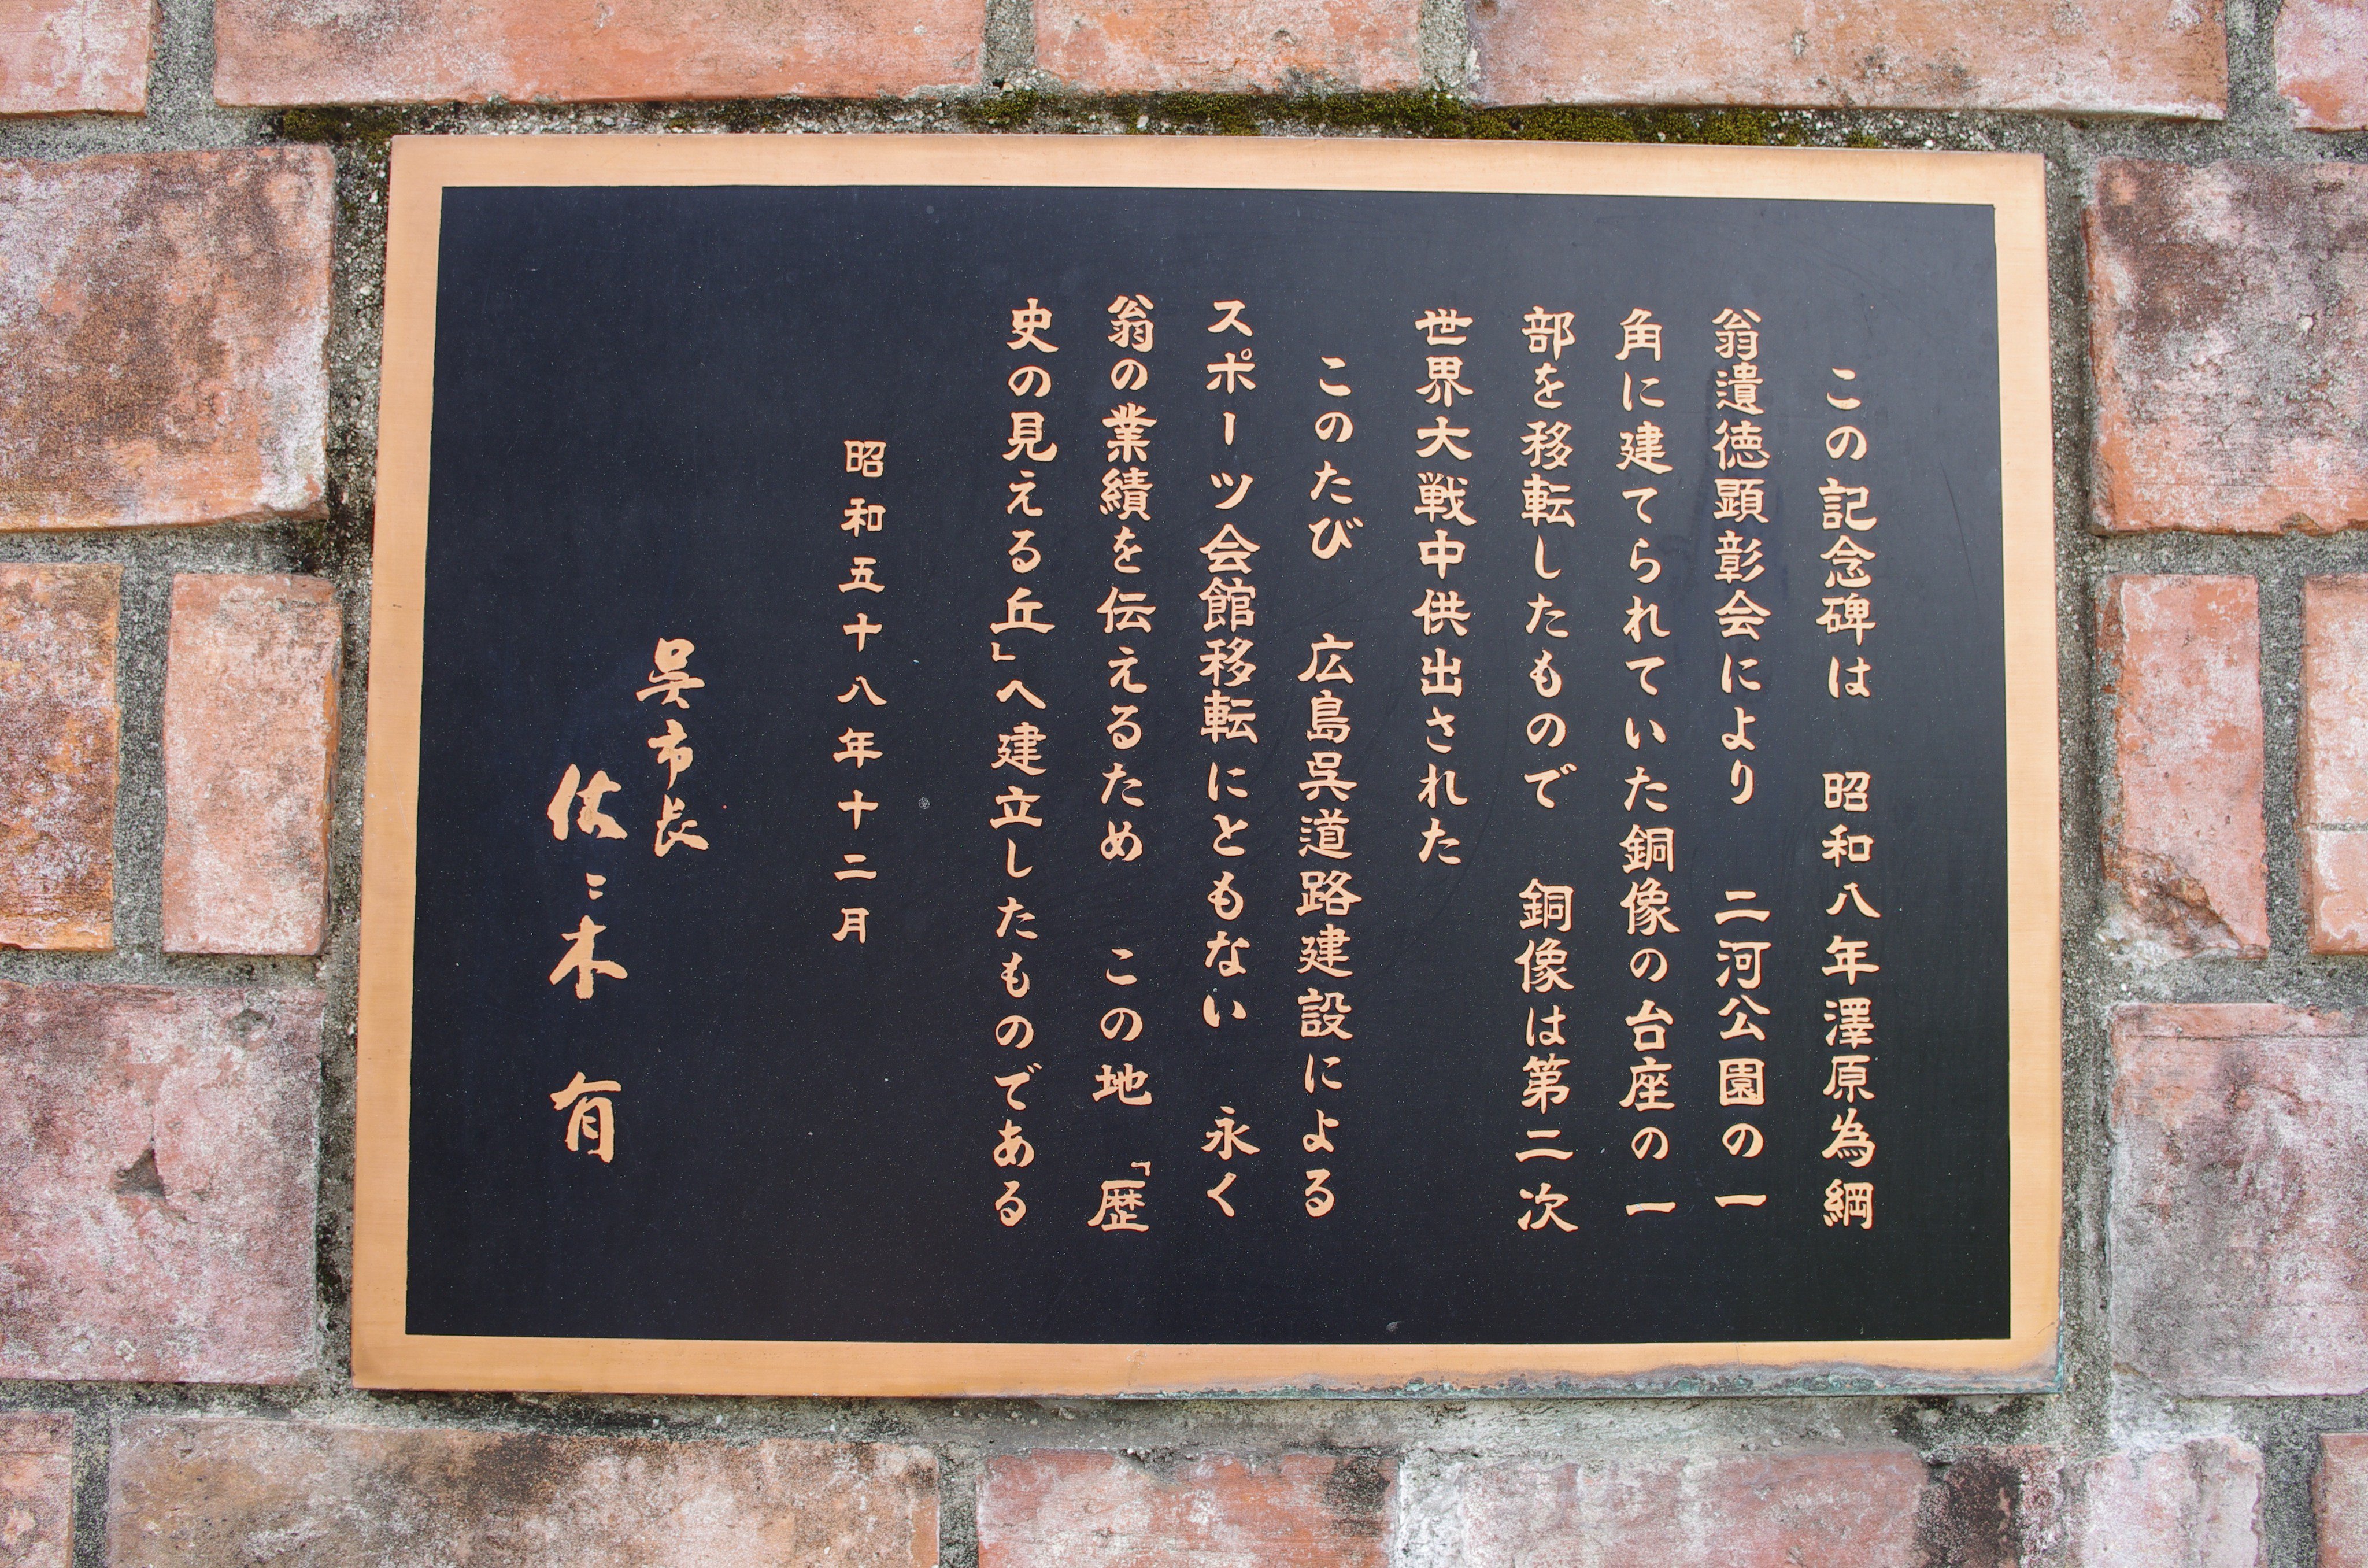 この記念碑は　昭和八年澤原為綱
翁遺徳顕彰会により　二河公園の一
角に建てられていた銅像の台座の一
部を移転したもので　銅像は第二次
世界大戦中供出された
このたび　広島呉道路建設による
スポーツ会館移転にともない　永く
翁の業績を伝えるため　この地「歴
史の見える丘」へ建立したものである
昭和五十八年十二月
呉市長
佐々木　有